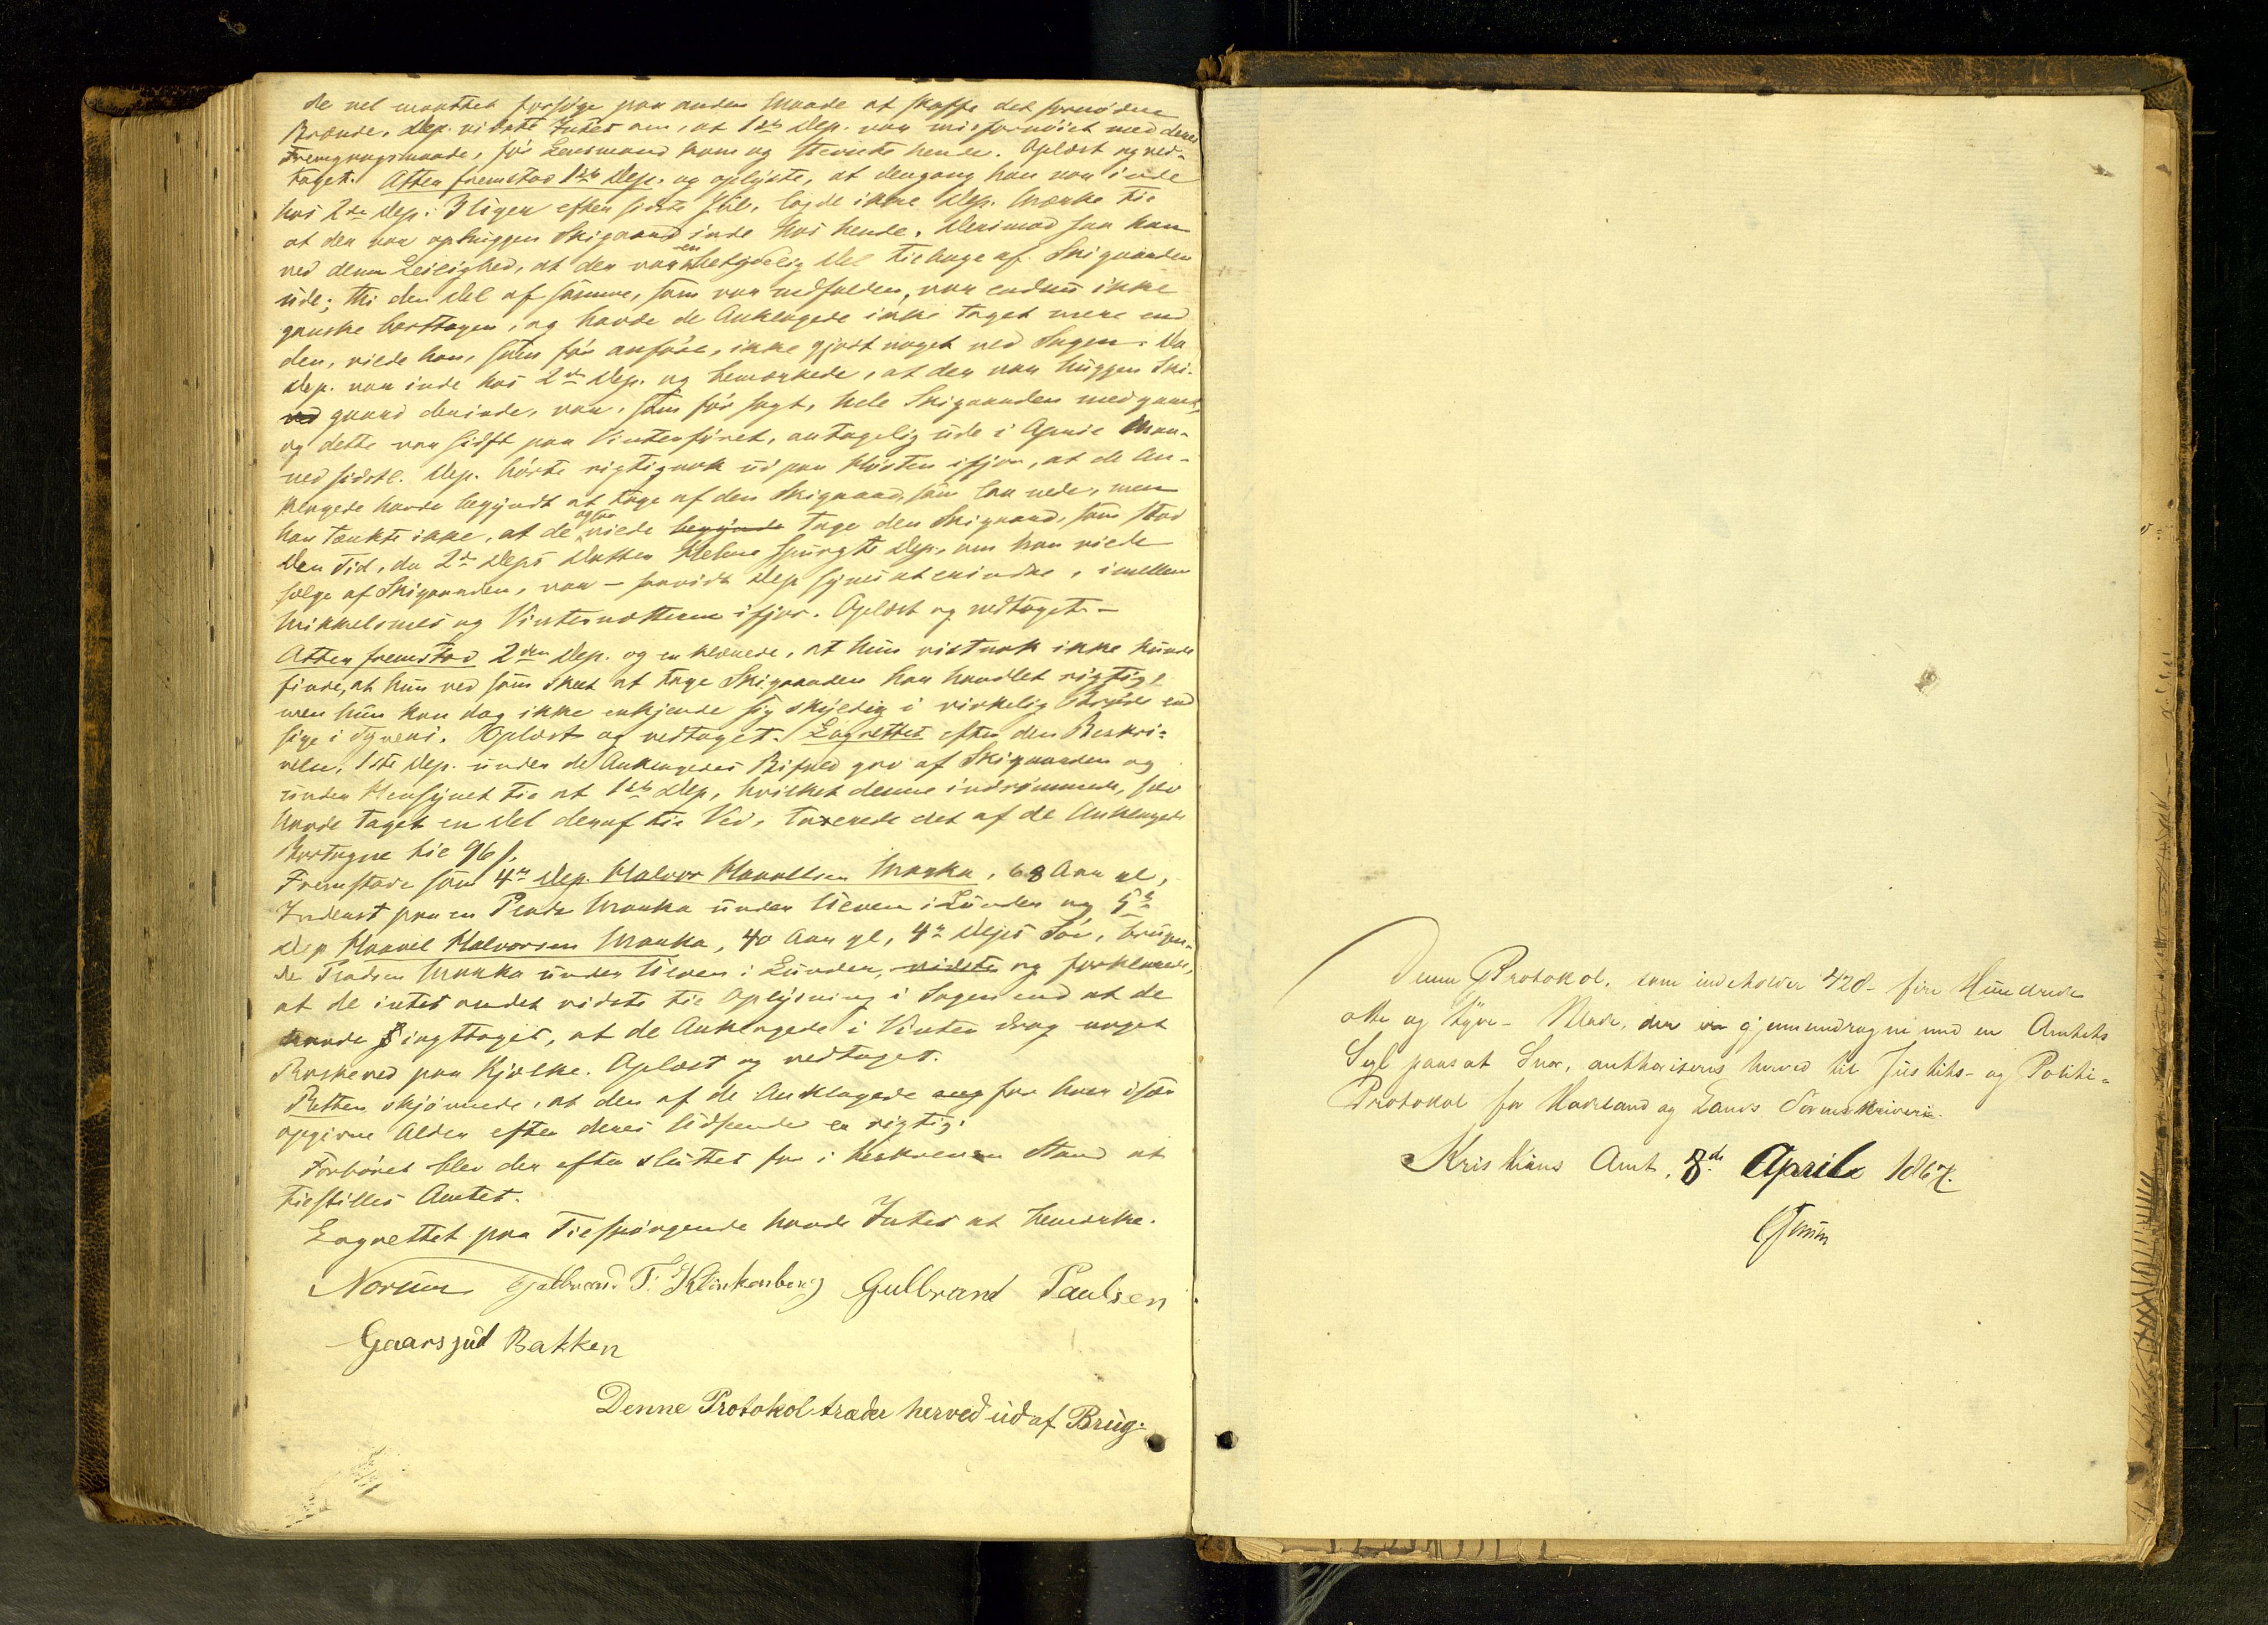 de vel maattet forsøge paa anden Maade at skaffe det fornødne
Brænde. Dep. vidste Intet om, at 1ste Dep. var misfornøiet med deres
Fremgangsmaade, før Lensmand kom og stevnte hende. Oplæst og ved-
taget. Atter fremstod 1ste Dep. og oplyste, at dengang han var inde
hos 2den Dep. 3 Uger efter sidste Jul, lagde ikke Dep. Mærke til
at der var ophuggen Skigaard inde hos hende. Derimod saa han
ved denne Leilighed, at der var en betydelig Del tilbage af Skigaarden
ude; thi den Del af samme, som var nedfalden, var endnu ikke
ganske borttagen, og havde de Anklagede ikke taget mere end
den, vilde han, som før anført, ikke gjort noget ved Sagen. Da
Dep. var inde hos 2den Dep. og bemærkede, at der var huggen Ski-
ved gaard derinde, var, som før sagt, hele Skigaarden medgaaet,
og dette var sidst paa Vinterføret, antagelig ude i April Maa-
ned sidstl. Dep. hørte rigtignok ud paa Høsten ifjor, at de An-
klagede havde begyndt at tage af den Skigaard, som laa nede, men
han tænkte ikke, at de ogsaa vilde begynde tage den Skigaard, som stod
Den Tid, da 2den Deps Datter Helene spurgte Dep., om han vilde
sælge af Skigaarden, var – saavidt Dep synes at erindre, imellem
Mikkelsmes og Vinternætterne ifjor. Oplæst og vedtaget. –
Atter fremstod 2den Dep. og erklærede, at hun vistnok ikke kunde
finde, at hun ved som skeet at tage Skigaarden har handlet rigtigt
men hun kan dog ikke erkjende sig skyldig i virkelig Brøde end
sige i Tyveri. Oplæst og vedtaget. Lagrettet efter den Beskri-
velse, 1ste Dep. under de Anklagedes Bifald gav af Skigaarden og
under Hensynet til at 1ste Dep, hvilket denne indrømmede, selv
havde taget en Del deraf til Ved, taxerede det af de Anklagede
Borttagne til 96 s.
Fremstode som 4de Dep. Halvor Haavelsen Marka, 68 Aar gl,
Inderst paa en Plads Marka under Ulven i Lunder og 5te
Dep Haavel Halvorsen Marka, 40 Aar gl, 4de Deps Søn, brugen-
de Pladsen Marka under Ulven i Lunder, vidste og forklarede,
at de intet andet vidste til Oplysning i Sagen end at de
havde iagttaget, at de Anklagede i Vinter drog noget
Baskeved paa Kjælke. Oplæst og vedtaget.
Retten skjønnede, at den af de Anklagede seg for hver især
opgivne Alder efter deres Udseende er rigtig.
Forhøret blev der efter sluttet for i beskreven Stand at
tilstilles Amtet.
Lagrettet paa Tilspørgende havde Intet at bemærke.
Norum Gulbrand T. Klinkenberg Gulbrand Paulsen
Gaarsjud Bakken
Denne Protokol træder herved ud af Brug.
Denne Protokol, som indeholder 428 – fire Hundrede
otte og tyve – Blade, der er gjennemdragne med en Amtets
Segl paasat Snor, authoriseres herved til Justits- og Politi-
Protokol for Hadeland og Lands Sorenskriveri.
Kristians Amt, 8de April 1867.